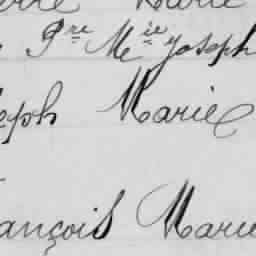 Marie
Pre Mie Joseph
eph Marie
ançois Marie